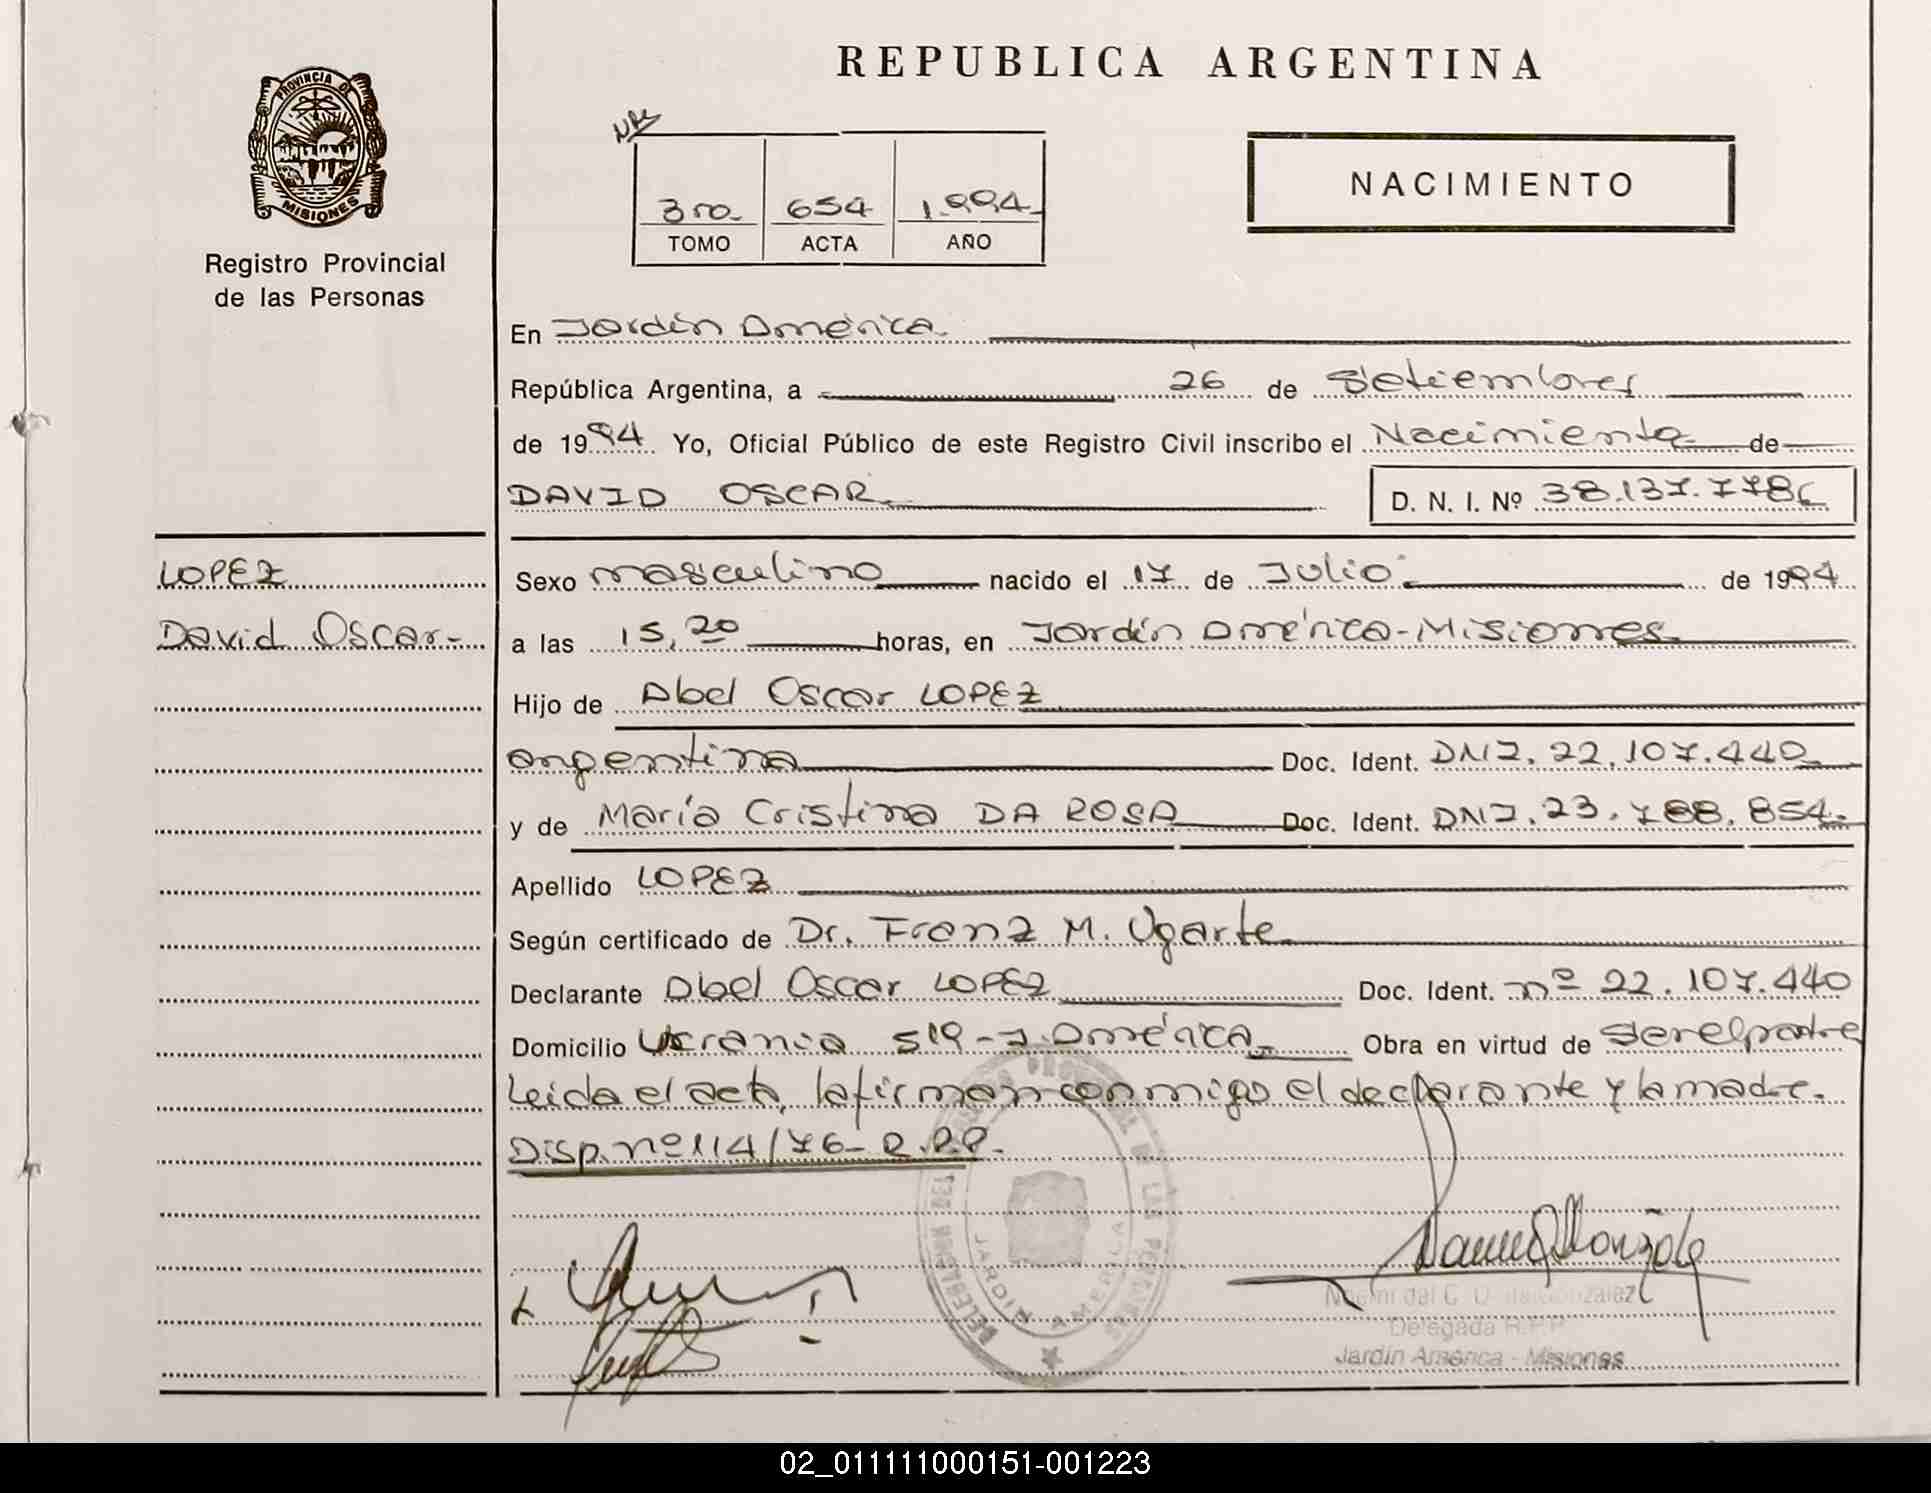 REPUBLICA ARGENTINA
PROVINCIA DE
MISIONES
Registro Provincial
de las Personas
3ro. 654 1.994.
TOMO ACTA AÑO
NACIMIENTO
En Jardín América.
República Argentina, a 26 de Setiembre
de 1994. Yo, Oficial Público de este Registro Civil inscribo el Nacimiento de
DAVID OSCAR. D. N. I. Nº
LOPEZ
David Oscar.-
Sexo masculino nacido el 17 de Julio de 1994
a las 15,20 horas, en Jardín América-Misiones.
Hijo de Abel Oscar LOPEZ
argentina Doc. Ident. DNI. 22.107.440.
y de María Cristina DA ROSA Doc. Ident. DNI. 23.788.854.
Apellido LOPEZ
Según certificado de Dr. Franz M. Ugarte.
Declarante Abel Oscar LOPEZ Doc. Ident. nº 22.107.440
Domicilio Ucrania S/Q - J. América. Obra en virtud de ser el padre
Leída el acta, la firman conmigo el declarante y la madre.
Disp. nº 114/76- R.P.P.
JARDIN AMERICA
Delegada R.P.P.
Jardín América - Misiones
02_011111000151-001223